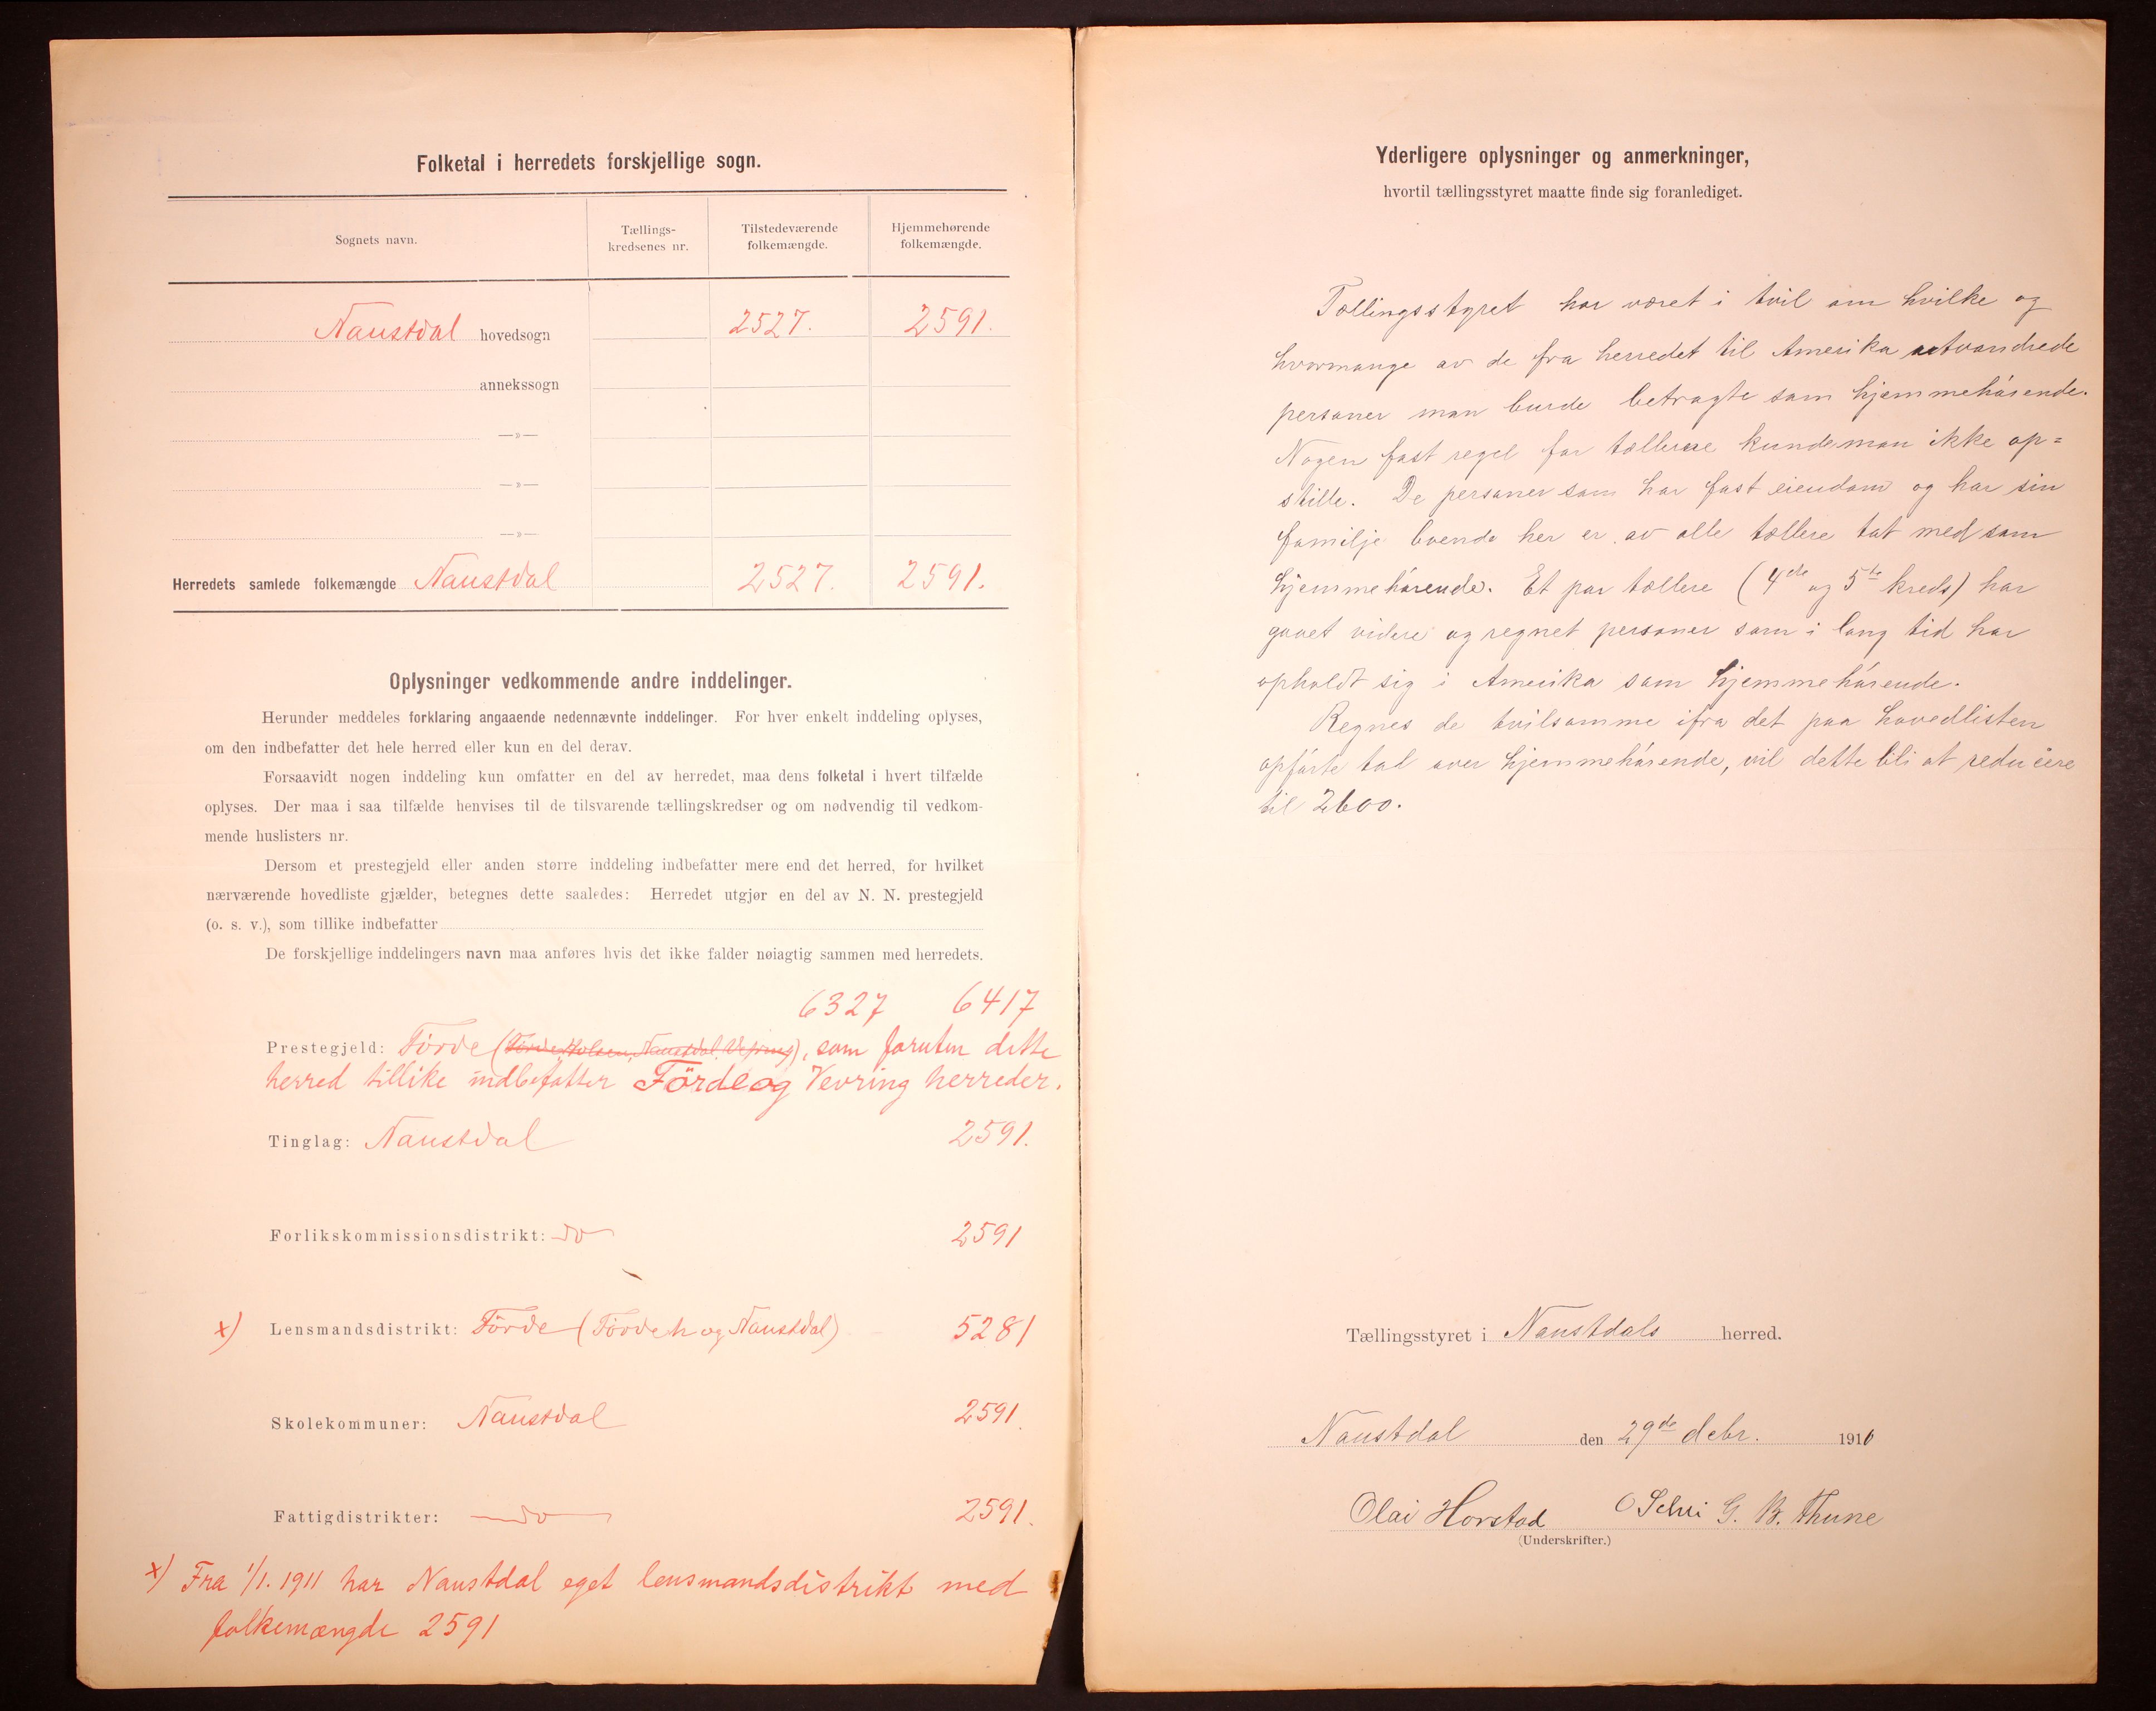 Folketal i herredets forskjellige sogn.
Sognets navn.
Tællings-
kredsenes nr.
Tilstedeværende
folkemængde.
Hjemmehørende
folkemængde.
Naustdal hovedsogn 2527. 2591.
annekssogn
—»—
—»—
—»—
Herredets samlede folkemængde Naustdal 2527. 2591.
Oplysninger vedkommende andre inddelinger.
Herunder meddeles forklaring angaaende nedennævnte inddelinger. For hver enkelt inddeling oplyses,
om den indbefatter det hele herred eller kun en del derav.
Forsaavidt nogen inddeling kun omfatter en del av herredet, maa dens folketal i hvert tilfælde
oplyses. Der maa i saa tilfælde henvises til de tilsvarende tællingskredser og om nødvendig til vedkom-
mende huslisters nr.
Dersom et prestegjeld eller anden større inddeling indbefatter mere end det herred, for hvilket
nærværende hovedliste gjælder, betegnes dette saaledes: Herredet utgjør en del av N. N. prestegjeld
(o. s. v.), som tillike indbefatter
De forskjellige inddelingers navn maa anføres hvis det ikke falder nøiagtig sammen med herredets.
6327 6417
Prestegjeld: Förde (Förde, Holsen, Naustdal), som foruten dette
herred tillike indbefatter Förde og Vevring herreder.
Tinglag: Naustdal 2591.
Forlikskommissionsdistrikt: do 2591
x) Lensmandsdistrikt: Förde (Förde h og Naustdal) 5281
Skolekommuner: Naustdal 2591.
Fattigdistrikter: do 2591.
x) Fra 1/1. 1911 har Naustdal eget lensmandsdistrikt med
folkemængde 2591
Yderligere oplysninger og anmerkninger,
hvortil tællingsstyret maatte finde sig foranlediget.
Tællingsstyret har været i tvil om hvilke og
hvormange av de fra herredet til Amerika utvandrede
personer man burde betragte som hjemmehörende.
Nogen fast regel for tællerne kunde man ikke op=
stille. De personer som har fast eiendom og har sin
familje boende her er av alle tællere tat med som
hjemmehörende. Et par tællere (4de og 5te kreds) har
gaaet videre og regnet personer som i lang tid har
opholdt sig i Amerika som hjemmehörende.
Regnes de tvilsomme ifra det paa hovedlisten
opförte tal over hjemmehörende, vil dette bli at reducere
til 2600.
Tællingsstyret i Naustdals herred.
Naustdal den 29de debr. 1910
Olai Horstad O Selvi G. B. Thune
(Underskrifter.)